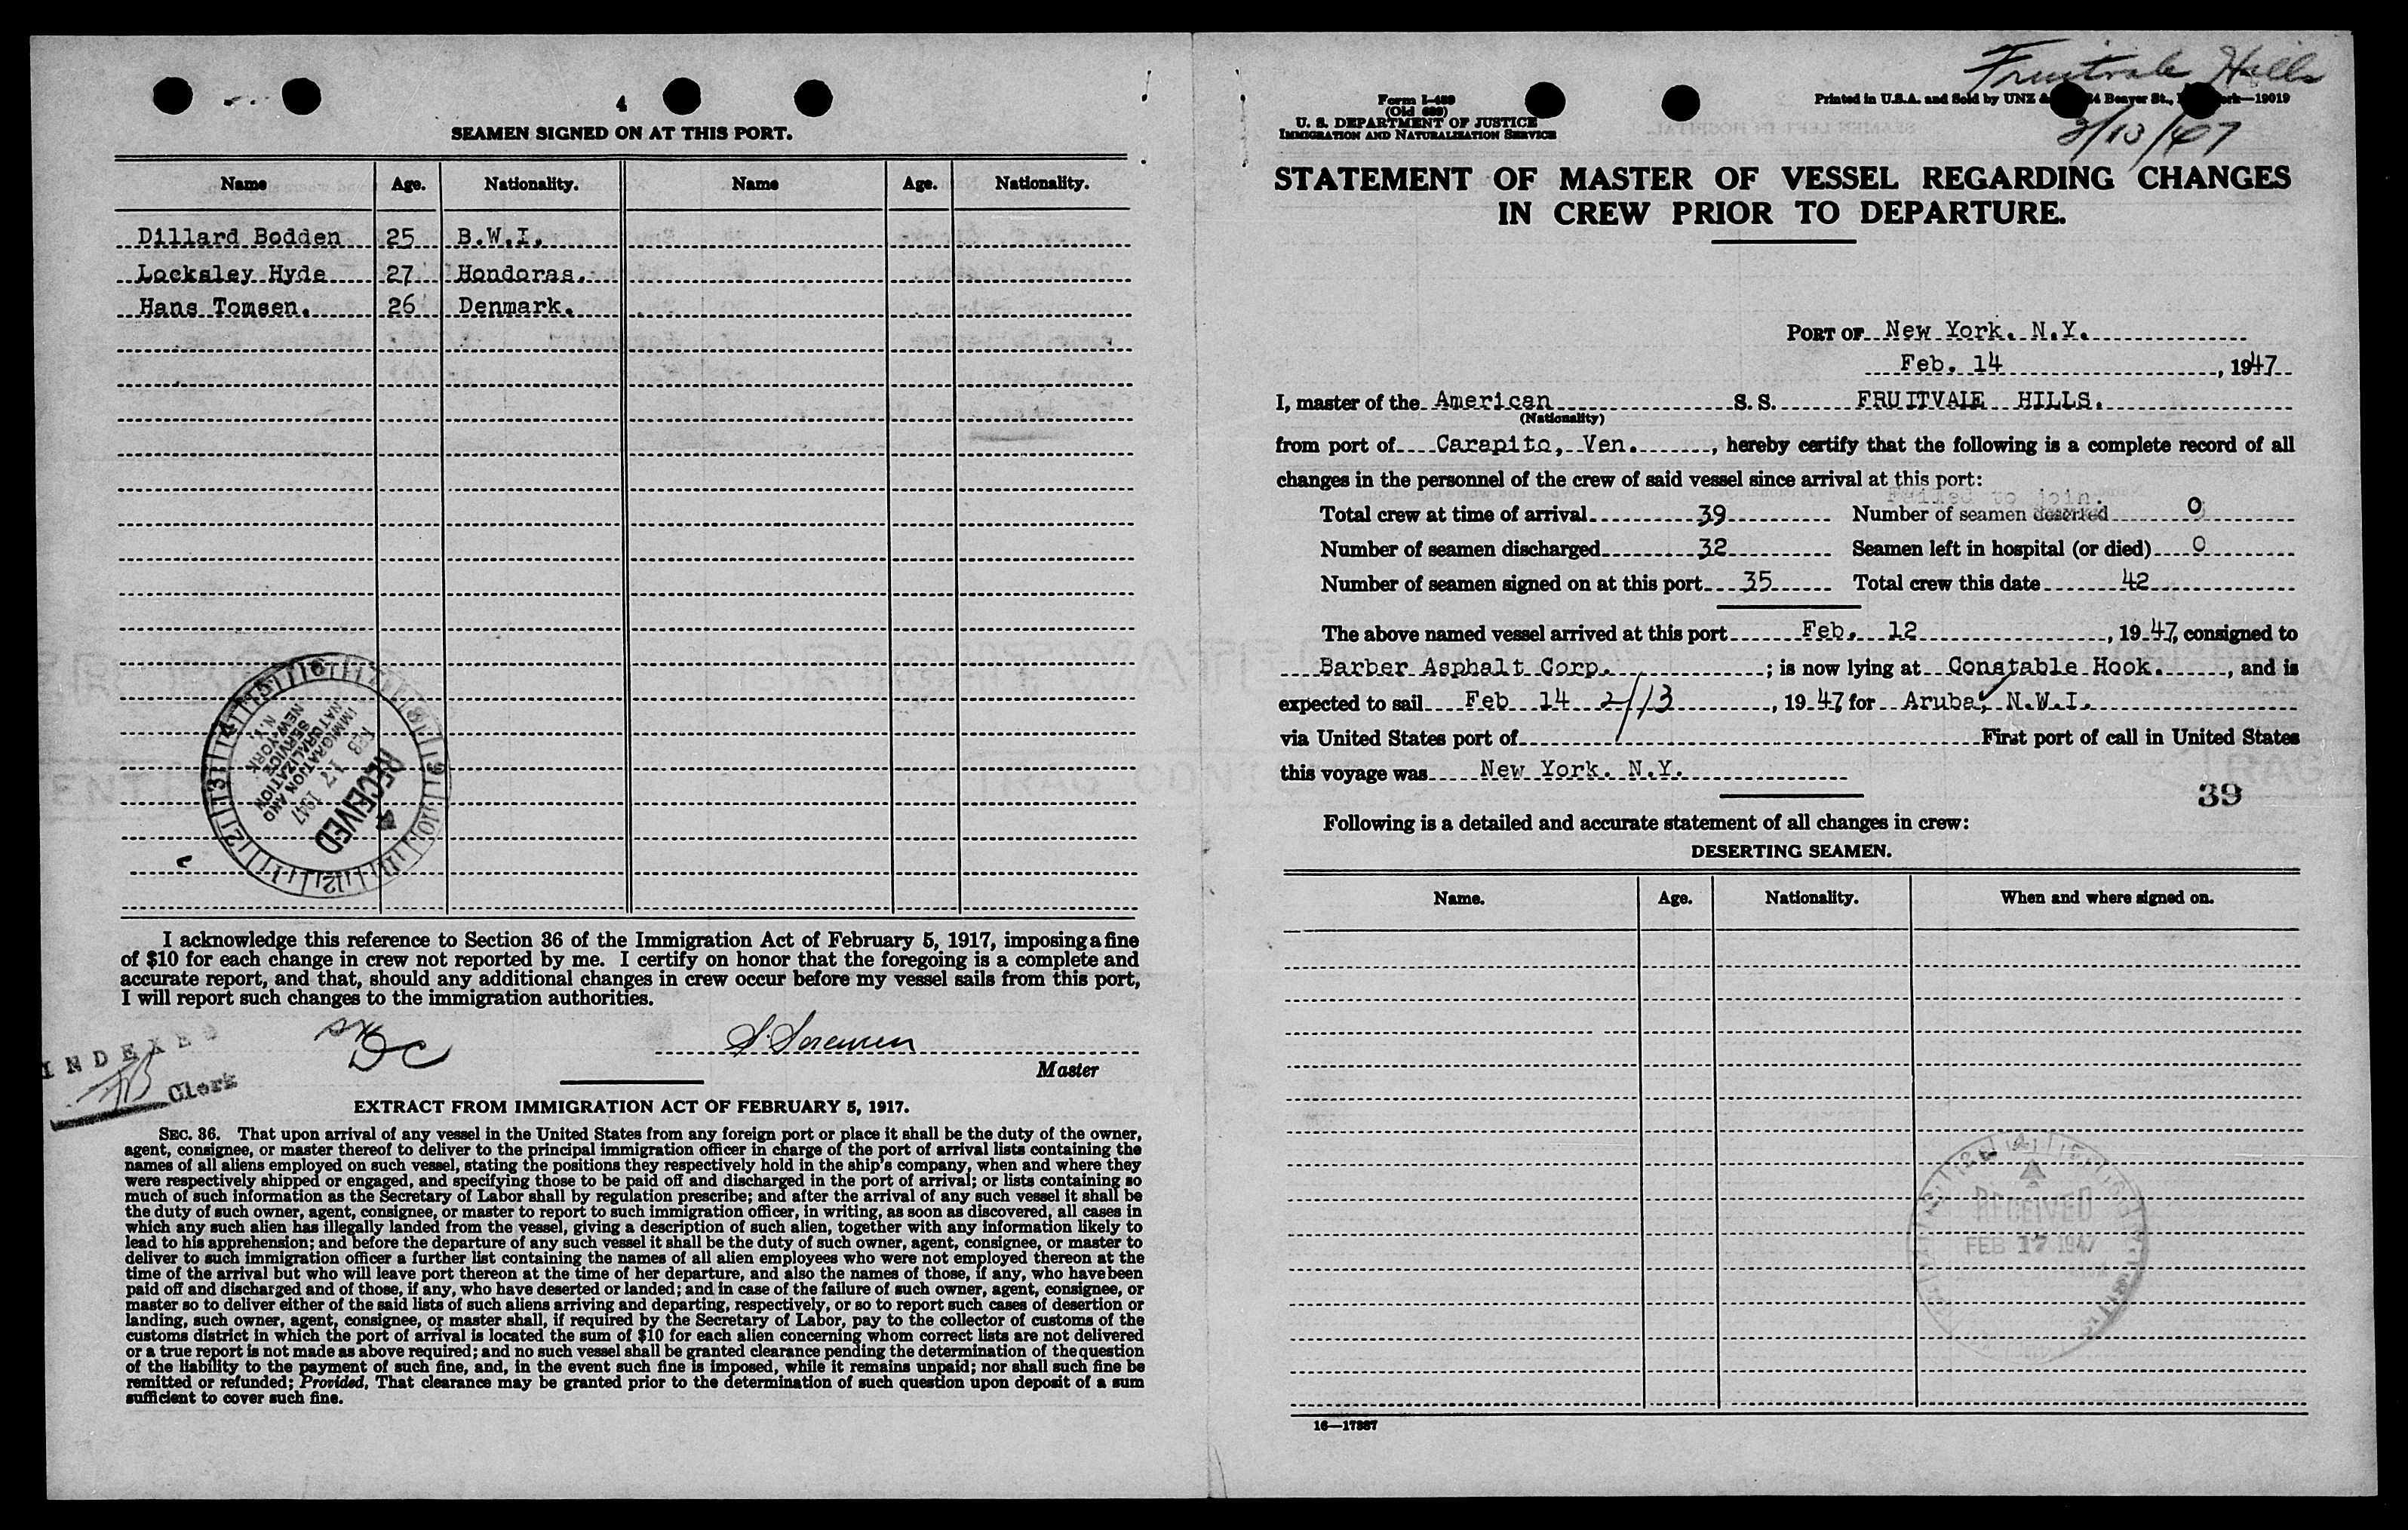 4
SEAMEN SIGNED ON AT THIS PORT.
Name Age. Nationality. Name Age. Nationality.
Dillard Bodden 25 B.W.I.
Locksley Hyde 27 Hondoras.
Hans Tomsen. 26 Denmark.
IMMIGRATION AND
NATURALIZATION
SERVICE
NEW YORK
N.Y.
FEB 17 1947
RECEIVED
I acknowledge this reference to Section 36 of the Immigration Act of February 5, 1917, imposing a fine
of $10 for each change in crew not reported by me. I certify on honor that the foregoing is a complete and
accurate report, and that, should any additional changes in crew occur before my vessel sails from this port,
I will report such changes to the immigration authorities.
S. Sorensen
Master
INDEXED
Clerk
EXTRACT FROM IMMIGRATION ACT OF FEBRUARY 5, 1917.
SEC. 36. That upon arrival of any vessel in the United States from any foreign port or place it shall be the duty of the owner,
agent, consignee, or master thereof to deliver to the principal immigration officer in charge of the port of arrival lists containing the
names of all aliens employed on such vessel, stating the positions they respectively hold in the ship's company, when and where they
were respectively shipped or engaged, and specifying those to be paid off and discharged in the port of arrival; or lists containing so
much of such information as the Secretary of Labor shall by regulation prescribe; and after the arrival of any such vessel it shall be
the duty of such owner, agent, consignee, or master to report to such immigration officer, in writing, as soon as discovered, all cases in
which any such alien has illegally landed from the vessel, giving a description of such alien, together with any information likely to
lead to his apprehension; and before the departure of any such vessel it shall be the duty of such owner, agent, consignee, or master to
deliver to such immigration officer a further list containing the names of all alien employees who were not employed thereon at the
time of the arrival but who will leave port thereon at the time of her departure, and also the names of those, if any, who have been
paid off and discharged and of those, if any, who have deserted or landed; and in case of the failure of such owner, agent, consignee, or
master so to deliver either of the said lists of such aliens arriving and departing, respectively, or so to report such cases of desertion or
landing, such owner, agent, consignee, or master shall, if required by the Secretary of Labor, pay to the collector of customs of the
customs district in which the port of arrival is located the sum of $10 for each alien concerning whom correct lists are not delivered
or a true report is not made as above required; and no such vessel shall be granted clearance pending the determination of the question
of the liability to the payment of such fine, and, in the event such fine is imposed, while it remains unpaid; nor shall such fine be
remitted or refunded; Provided, That clearance may be granted prior to the determination of such question upon deposit of a sum
sufficient to cover such fine.
Fruitvale Hills
2/13/47
Form I-489
(Old 689)
U. S. DEPARTMENT OF JUSTICE
IMMIGRATION AND NATURALIZATION SERVICE
Printed in U.S.A. and Sold by UNZ & Beaver St., 19019
STATEMENT OF MASTER OF VESSEL REGARDING CHANGES
IN CREW PRIOR TO DEPARTURE.
PORT OF New York. N.Y.
Feb. 14, 1947
I, master of the American S. S. FRUITVALE HILLS.
(Nationality)
from port of Carapito, Ven., hereby certify that the following is a complete record of all
changes in the personnel of the crew of said vessel since arrival at this port:
Failed to join.
Total crew at time of arrival 39 Number of seamen deserted 0
Number of seamen discharged 32 Seamen left in hospital (or died) 0
Number of seamen signed on at this port 35 Total crew this date 42
The above named vessel arrived at this port Feb. 12, 1947, consigned to
Barber Asphalt Corp.; is now lying at Constable Hook., and is
expected to sail Feb 14 2/13, 1947 for Aruba, N.W.I.
via United States port of First port of call in United States
this voyage was New York. N.Y.
39
Following is a detailed and accurate statement of all changes in crew:
DESERTING SEAMEN.
Name. Age. Nationality. When and where signed on.
RECEIVED
FEB 17 1947
16—17887